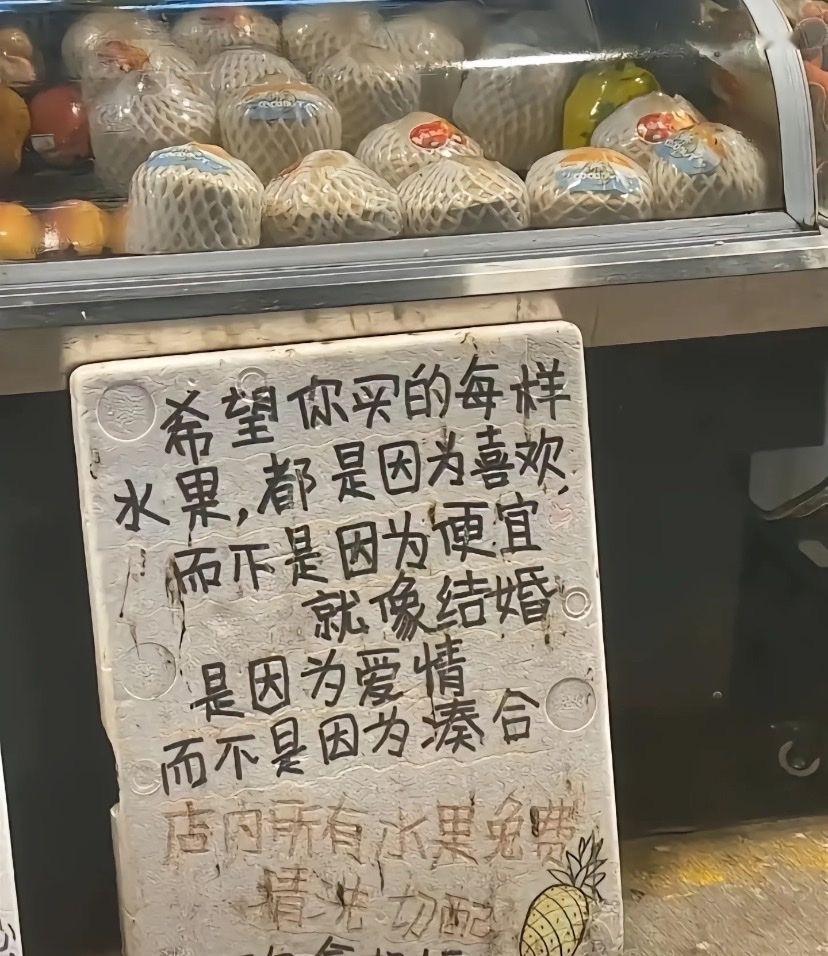 coconut
希望你买的每样
水果，都是因为喜欢，
而不是因为便宜
就像结婚
是因为爱情
而不是因为凑合
店内所有水果免费
清洗切配